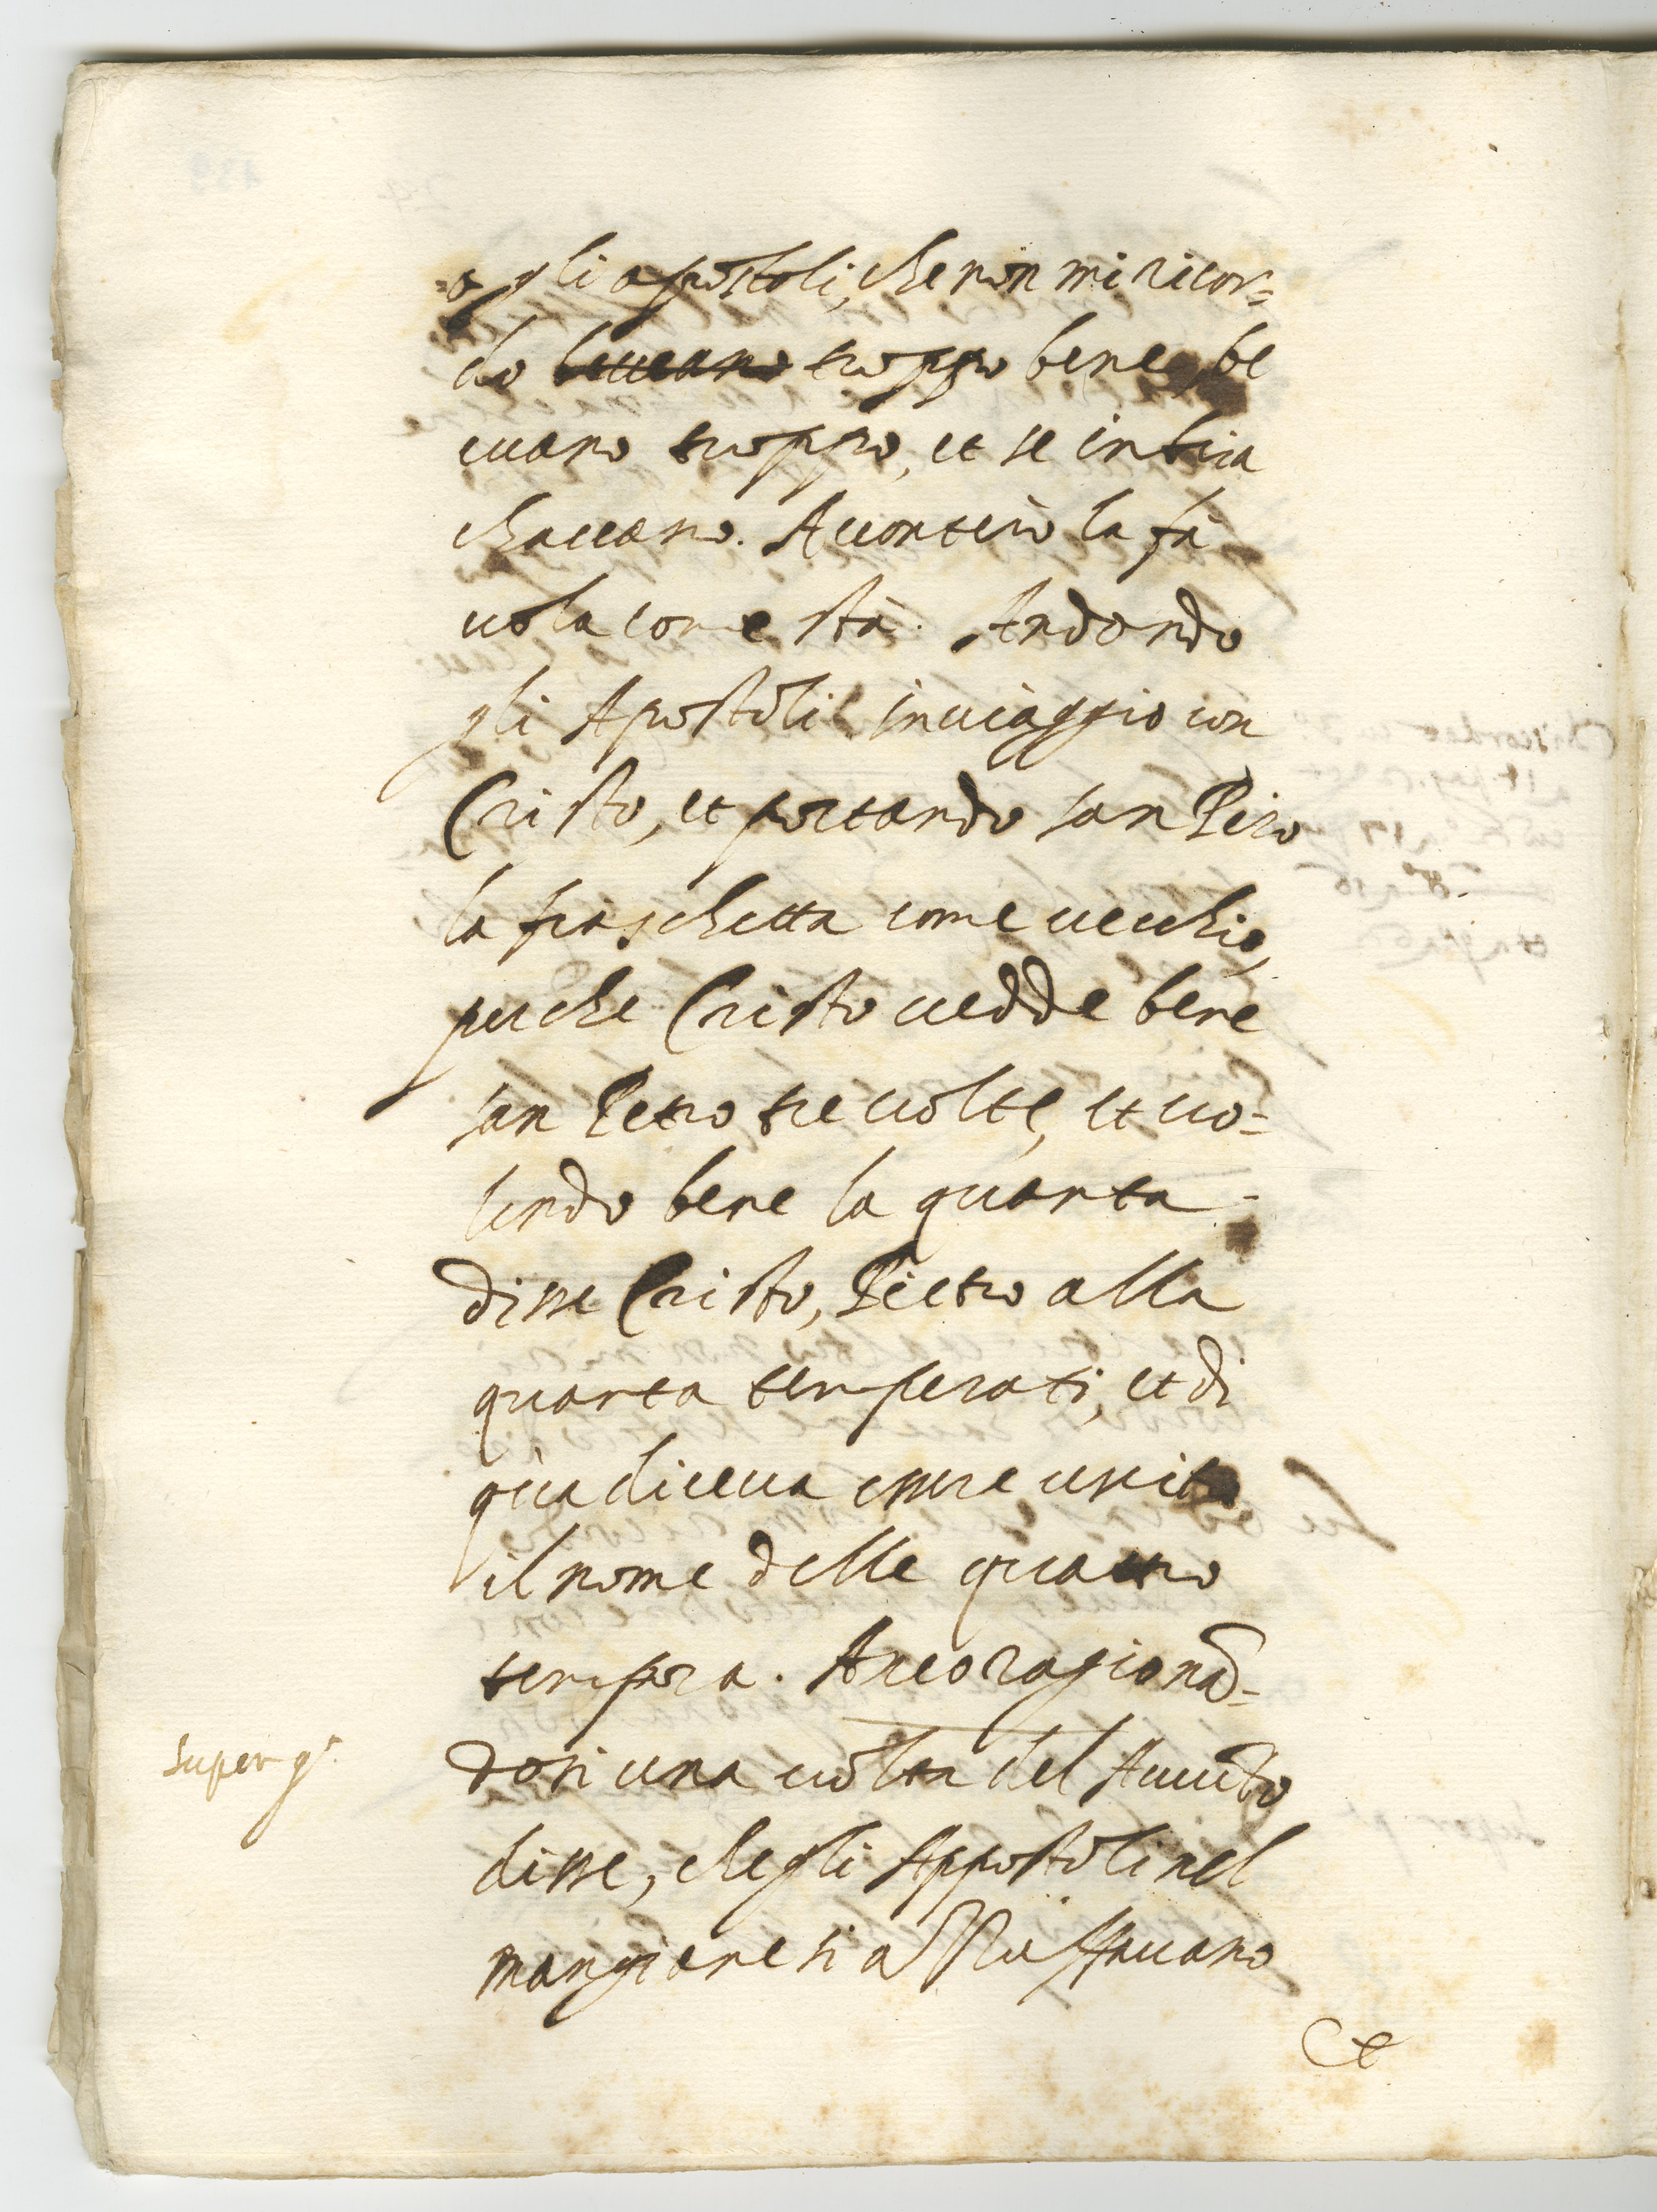 =o gli apostoli, che non mi ricor=
do beueano troppo bene, be
euano troppo, et se inbria
chaueano. Acontero la fa
uola come sta. Andando
gli Apostoli in uiaggio con
Cristo, et portando san Piero
la fiaschetta come uecchio,
perche Cristo uedde bere
san Petro tre uolte, et uo=
lendo bere la quarta -
disse Cristo, Pietro alla
quarta temperati, et di
qua diceua essere uscito
il nome delle quattro
tempora. Anco ragionãd=
super q.
dosi una uolta del
disse, che gli Appostoli nel
mangiare si
et